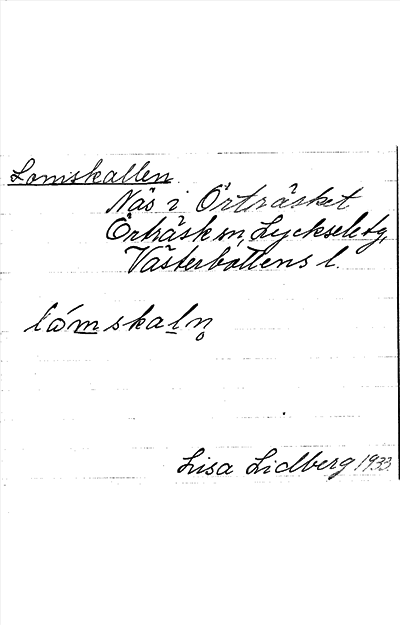 Lomskallen
Näs i Örträsket
Örträsk sn, Lycksele tg,
Västerbottens l.
lómskaln̥
Lisa Lidberg 1933.